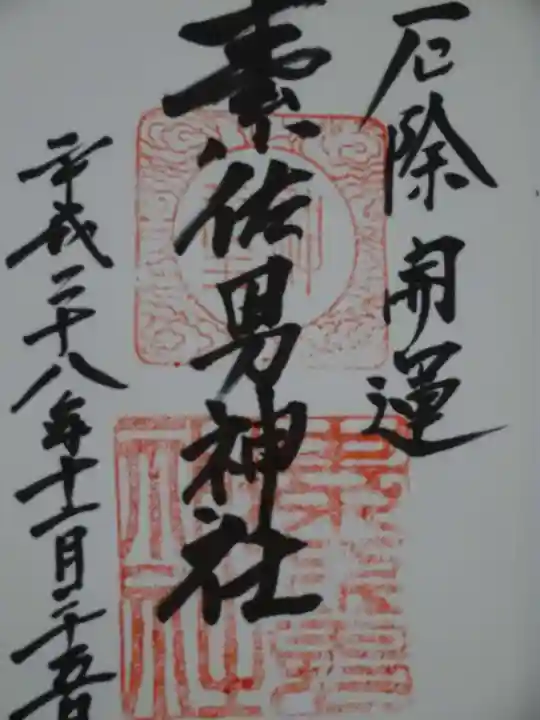 厄除開運
素佐男神社
平成二十八年十一月二十五日